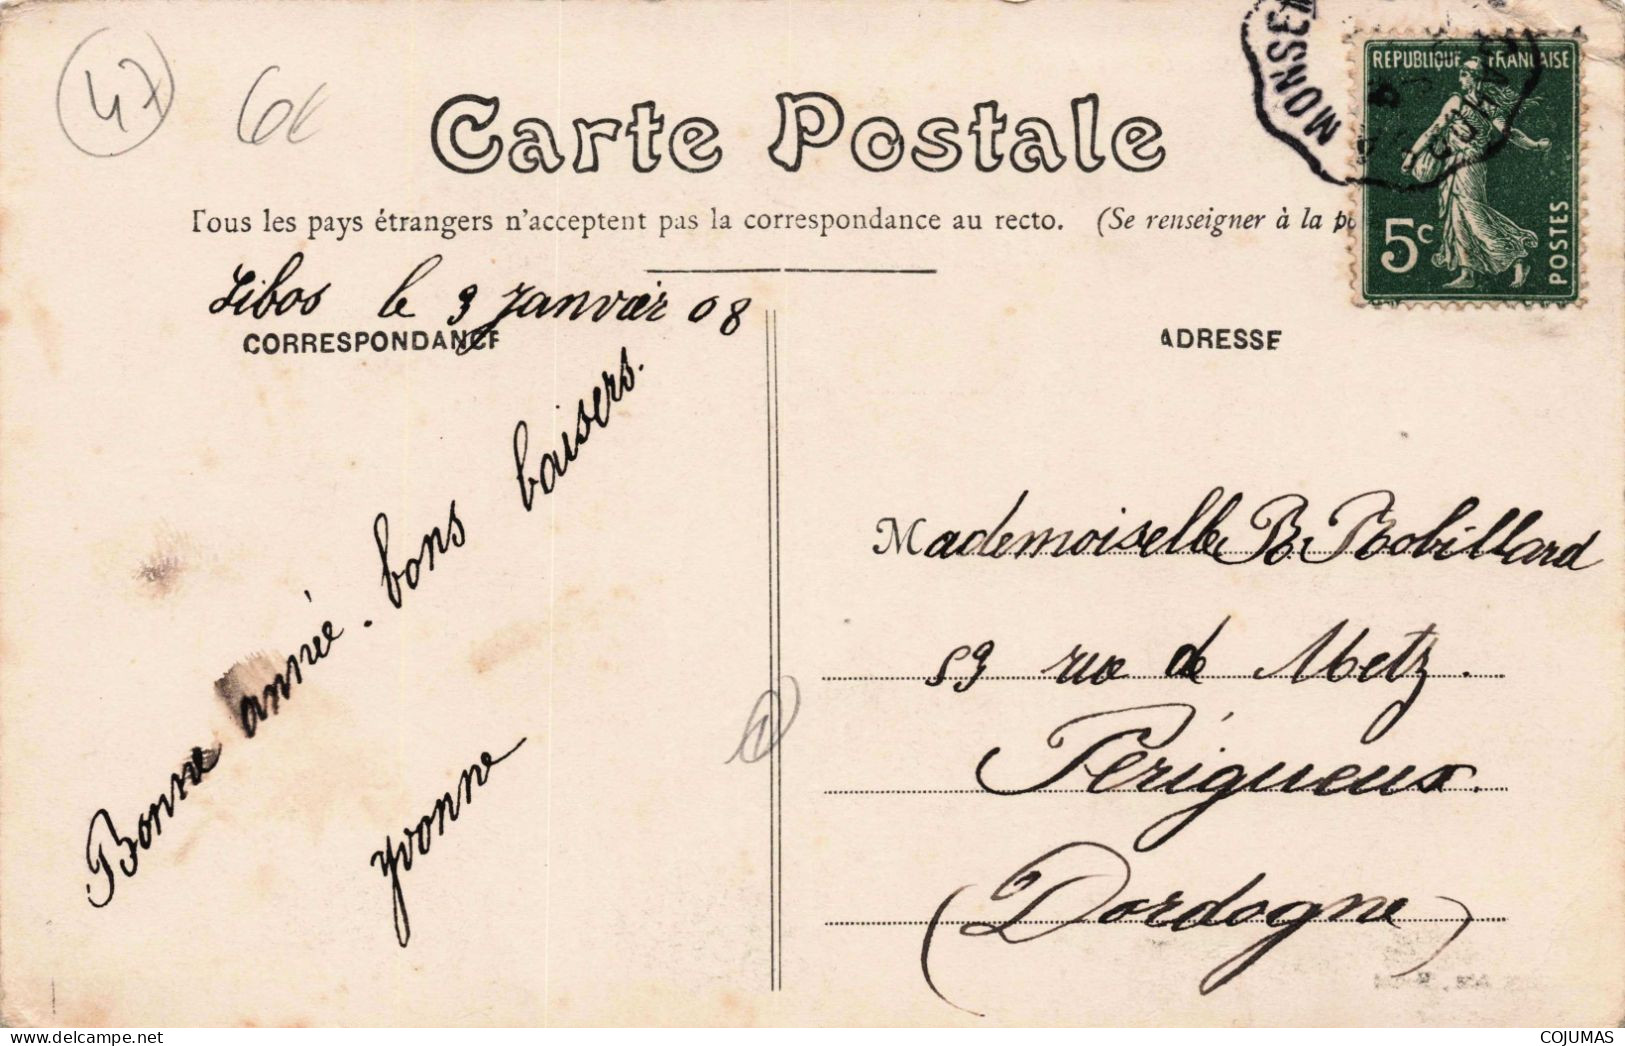 47
Carte Postale
Tous les pays étrangers n'acceptent pas la correspondance au recto. (Se renseigner à la
REPUBLIQUE FRANÇAISE
5c
POSTES
MONSE
Libos le 3 Janvier 08
CORRESPONDANCE
Bonne année. bons baisers.
Yvonne
ADRESSE
Mademoiselle B. Robillard
53 rue de Metz.
Périgueux.
(Dordogne)
COJUMAS